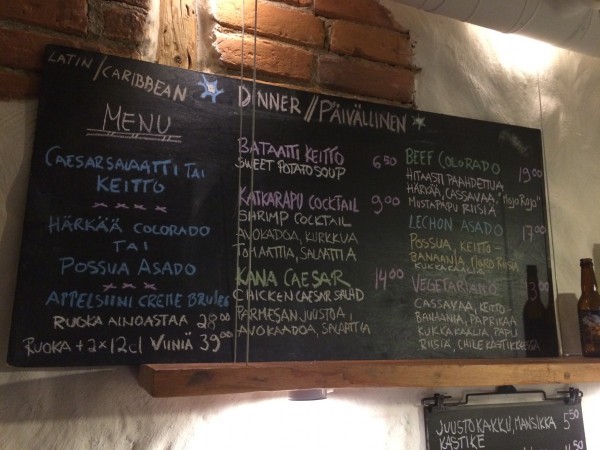 LATIN/CARIBBEAN
MENU
CAESARSALAATTI TAI
KEITTO
HÄRKÄÄ COLORADO
TAI
POSSUA ASADO
APPELSIINI CREME BRULES
RUOKA AINOASTAA 28 00
RUOKA + 2 x 12cl VIINIÄ 39 00
DINNER//PÄIVÄLLINEN
BATAATTI KEITTO 6 50
SWEET POTATO SOUP
KATKARAPU COCKTAIL 9 00
SHRIMP COCKTAIL
AVOKADOA, KURKKUA
TOMAATTIA, SALAATTIA
KANA CAESAR 14 00
CHICKEN CAESAR SALAD
PARMESAN JUUSTOA,
AVOKAADOA, SALAATTIA
BEEF COLORADO 19 00
HITAASTI PAAHDETTUA
HÄRKÄÄ, CASSAVAA, "MOJO ROJO"
MUSTAPAPU RIISIÄ
LECHON ASADO 17 00
POSSUA, KEITTO-
BANAANIA, MORO RIISIÄ
KUKKAKAALIA
VEGETARIANO 13 00
CASSAVAA, KEITTO
BANAANIA, PAPRIKAA
KUKKAKAALIA, PAPU
RIISIÄ, CHILEKASTIKKEA
JUUSTOKAKKU, MANSIKKA 5 50
KASTIKE